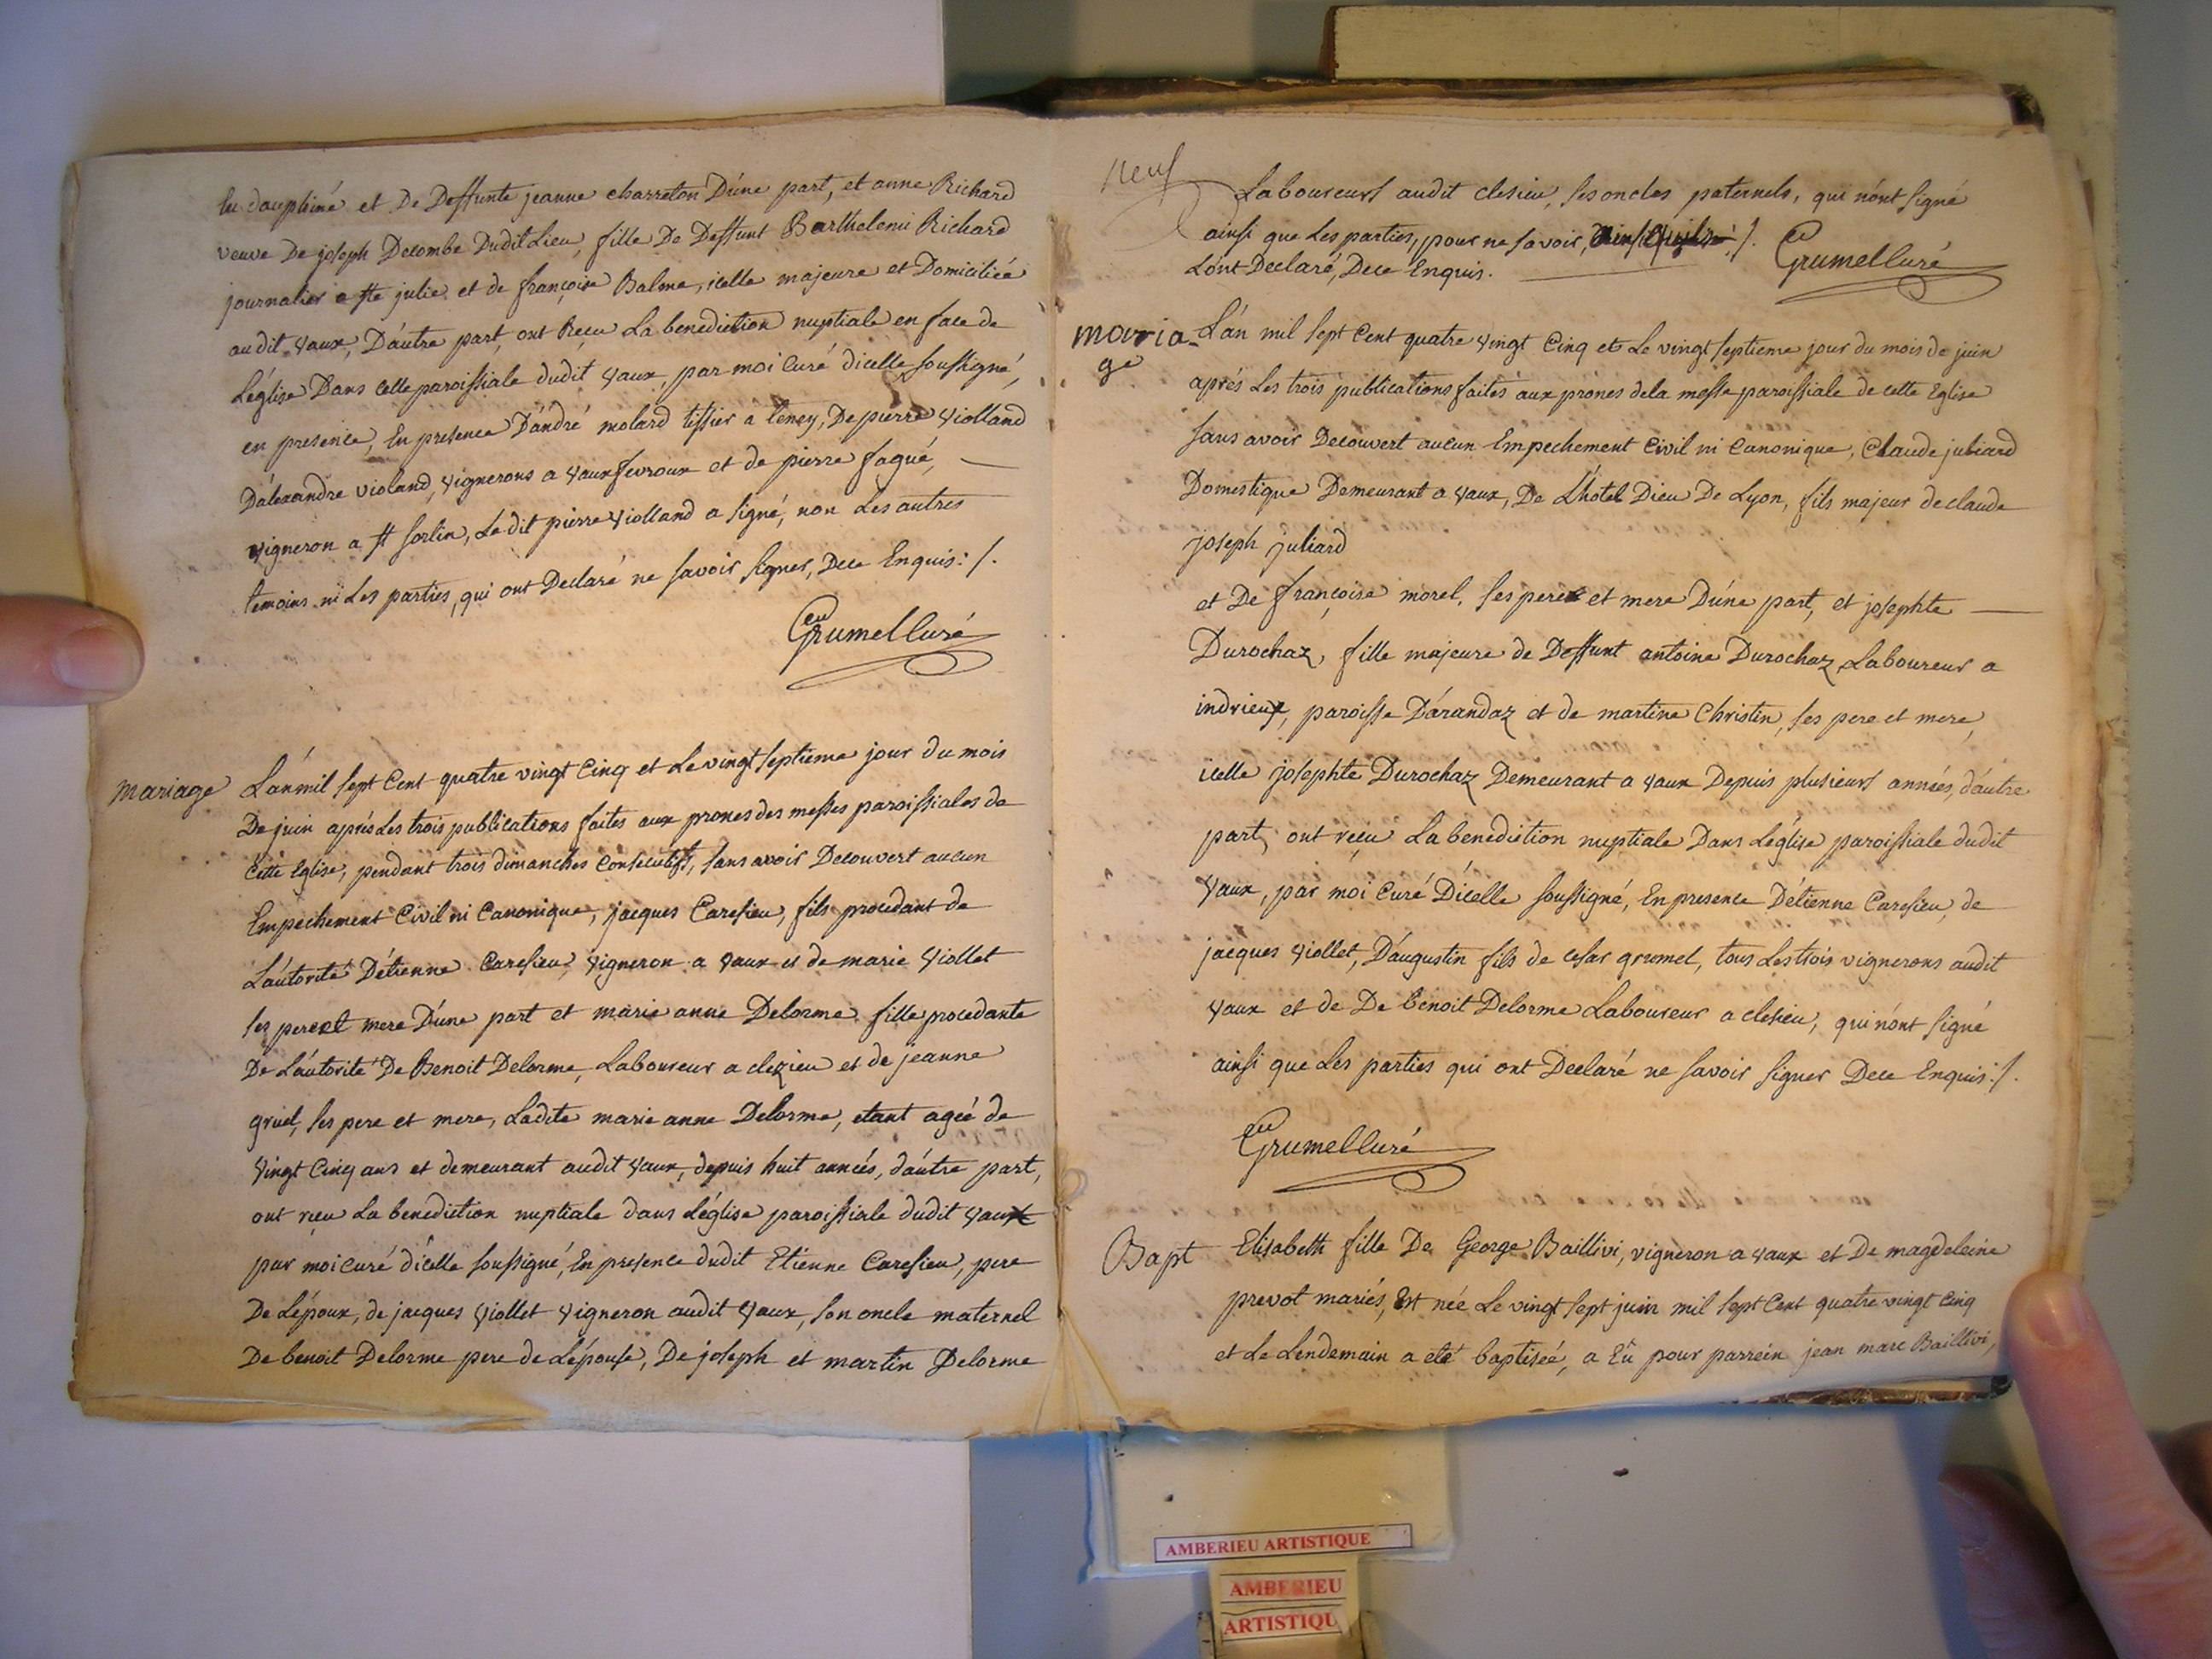 en dauphiné et De Deffunte jeanne charreton D'úne part, et anne Richard
veuve De joseph Decombe Dudit Lieu, fille De Deffunt Barthelemi Richard
journalier a ste julie et de françoise Balme, icelle majeure et Domiciliée
audit vaux, D'áutre part, ont Reçu La benediction nuptiale en face de
L'église Dans celle paroissiale dudit vaux, par moi Curé dicelle soussigné,
en presence, En presence D'ándré molard tissier a leney, De pierre violland
D'álexandre violand, vignerons a vaux fevroux et de pierre fagué,
vigneron a st sorlin, Le dit pierre violland a signé, non Les autres
temoins ni Les parties, qui ont Declaré ne savoir signer, Dece Enquis :/.
Grumel Curé
mariage L'án mil sept Cent quatre vingt Cinq et Le vingt septieme jour du mois
De juin aprés Les trois publications faites aux prones des messes paroissiales de
Cette Eglise, pendant trois dimanches consecutifs, sans avoir Decouvert aucun
Empechement Civil ni Canonique, jacques Caresieu, fils procedant de
L'áutorité D'étienne Caresieu, vigneron a vaux et de marie viollet
ses pere et mere D'úne part et marie anne Delorme fille procedante
De L'áutorité De Benoit Delorme, Laboureur a clezieu et de jeanne
gruel, ses pere et mere, Ladite marie anne Delorme, etant ageé de
vingt Cinq ans et demeurant audit vaux, depuis huit anneés, d'áutre part,
ont reçu La benediction nuptiale dans L'église paroissiale dudit vaux
par moi curé d'icelle soussigné, En presence dudit Etienne Caresieu, pere
De L'époux, de jacques viollet vigneron audit vaux, son oncle maternel
De benoit Delorme pere de L'épouse, De joseph et martin Delorme
neuf
Laboureurs audit clesieu, ses oncles paternels, qui n'ónt signé
ainsi que Les parties, pour ne savoir, /.
L'ónt Declaré, Dece Enquis.
Grumel Curé
maria- L'án mil sept Cent quatre vingt Cinq et Le vingt septieme jour du mois de juin
ge aprés Les trois publications faites aux prônes dela messe paroissiale de cette Eglise
sans avoir Decouvert aucun Empechement Civil ni Canonique, Claude juliard
Domestique Demeurant a vaux, De L'hotel Dieu De Lyon, fils majeur de claude
joseph juliard
et De françoise morel, ses pere et mere D'úne part, et josephte
Durochaz, fille majeure de Deffunt antoine Durochaz Laboureur a
indrieux, paroisse D'árandaz et de martine Christin, ses pere et mere,
icelle josephte Durochaz Demeurant a vaux Depuis plusieurs anneés, d'áutre
part, ont reçu La benediction nuptiale Dans L'église paroissiale dudit
vaux, par moi Curé D'icelle soussigné, En presence D'étienne Caresieu, de
jacques viollet, D'áugustin fils de cesar grumel, tous Les trois vignerons audit
vaux et de De benoit Delorme Laboureur a clesieu, qui n'ónt signé
ainsi que Les parties qui ont Declaré ne savoir signer Dece Enquis :/.
Grumel Curé
Bapt Elisabeth fille De George Baillivi, vigneron a vaux et De magdeleine
prevot mariés, Est née Le vingt sept juin mil sept Cent quatre vingt cinq
et Le Lendemain a eté baptiseé, a Eû pour parrein jean marc Baillivi,
AMBERIEU ARTISTIQUE
AMBERIEU
ARTISTIQU